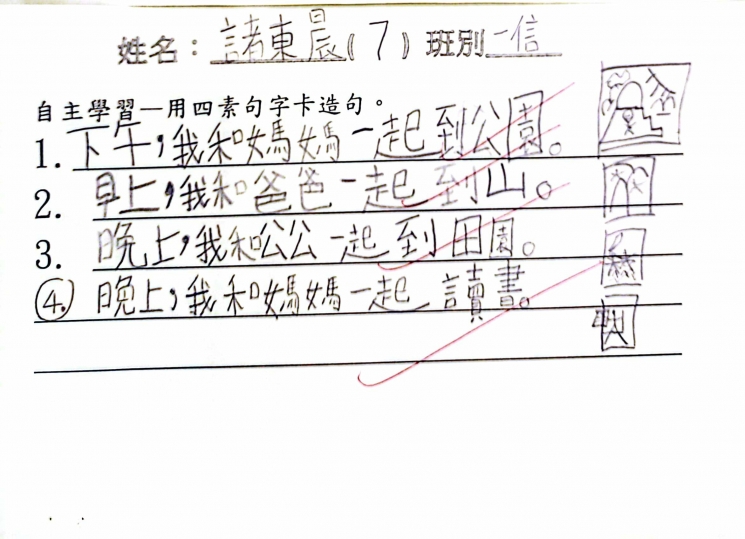 姓名：諸東晨(7)班別一信
自主學習—用四素句字卡造句。
1. 下午，我和媽媽一起到公園。
2. 早上，我和爸爸一起到山。
3. 晚上，我和公公一起到田園。
④. 晚上，我和媽媽一起讀書。